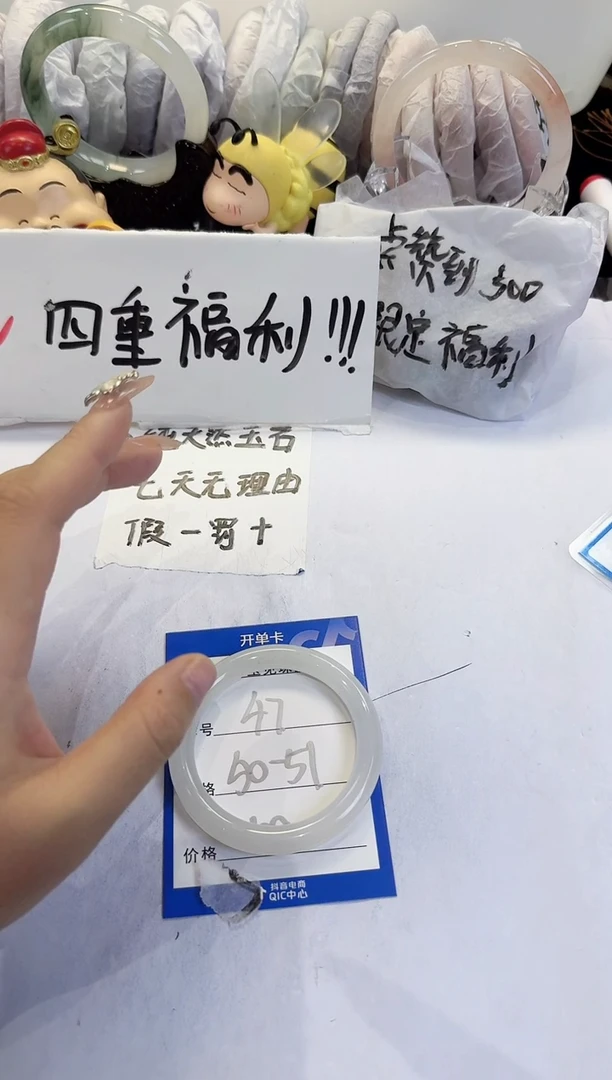 四重福利!!!
点赞到300
限定福利
天然玉石
七天无理由
假一罚十
开单卡
号 47
格 50-51
价格
抖音电商
QIC中心